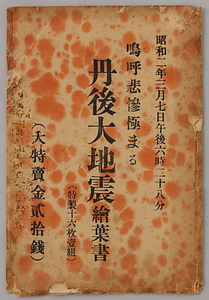 昭和二年三月七日午後六時二十八分
嗚呼悲慘極まる
丹後大地震繪葉書
(特製十六枚壹組)
(大特賣金貳拾錢)